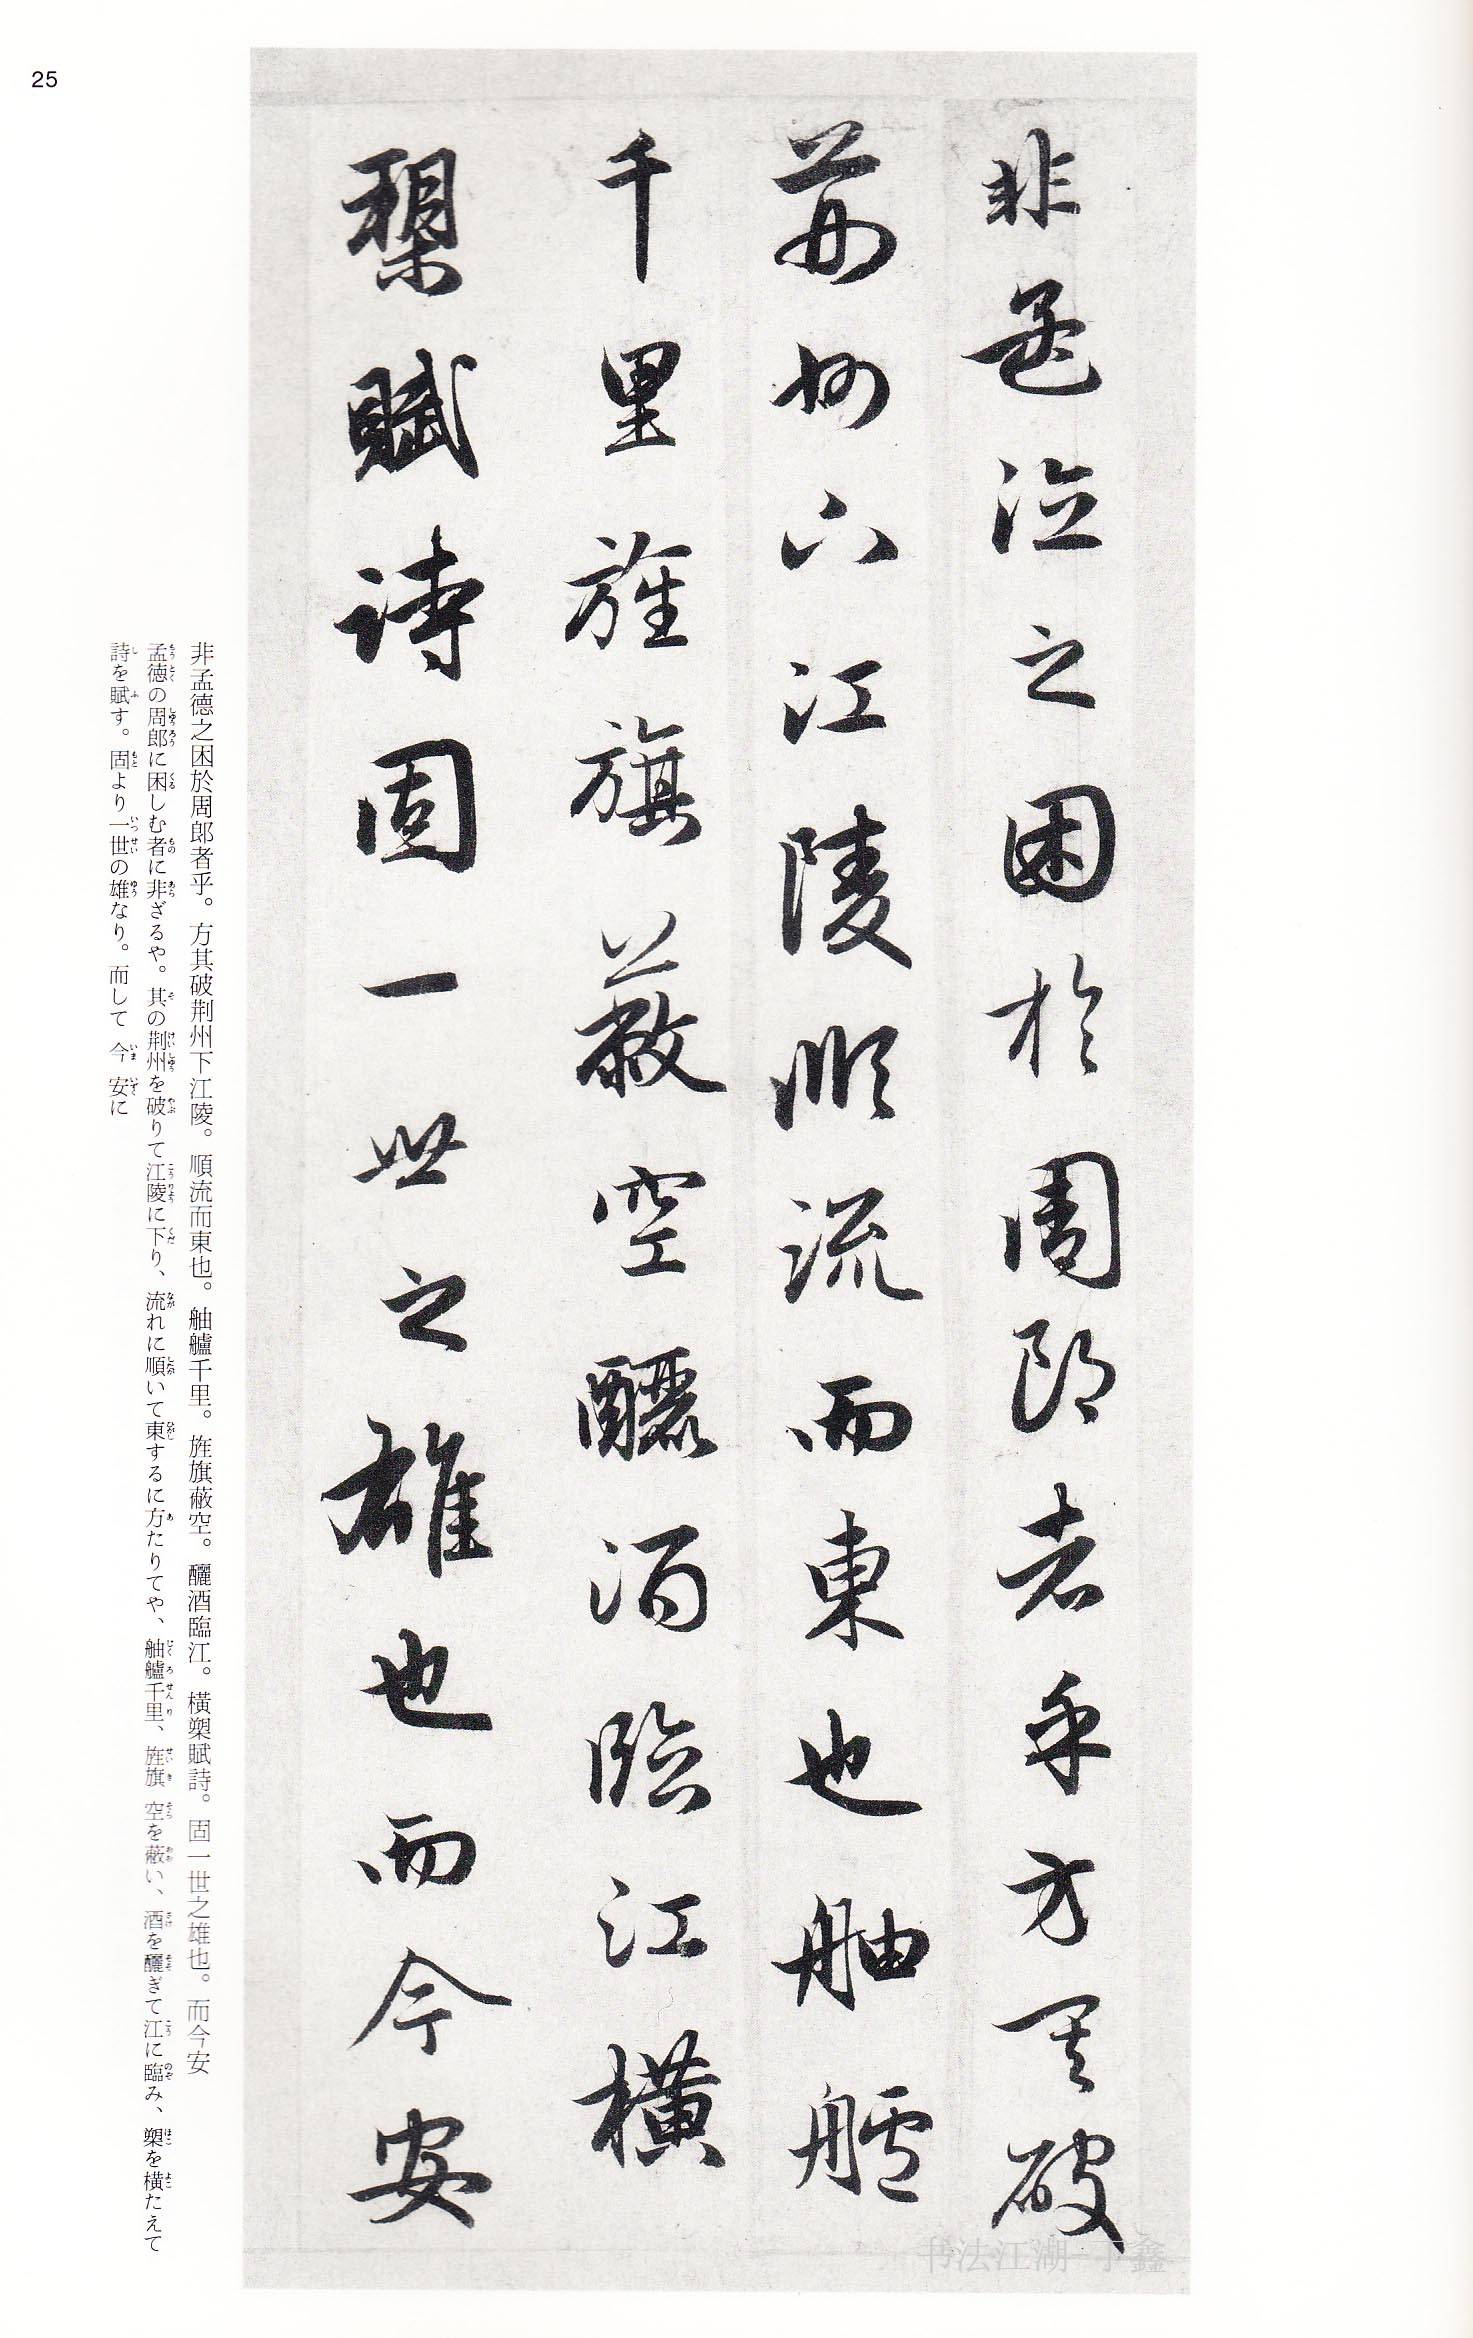 25
非孟德之困於周郎者乎方其破
荊州下江陵順流而東也舳艫
千里旌旗蔽空釃酒臨江横
槊賦詩固一世之雄也而今安
非孟德之困於周郎者乎。方其破荆州下江陵。順流而東也。舳艫千里。旌旗蔽空。釃酒臨江。横槊賦詩。固一世之雄也。而今安
孟德の周郎に困しむ者に非ざるや。其の荆州を破りて江陵に下り、流れに順いて東するに方たりてや、舳艫千里、旌旗空を蔽い、酒を釃ぎて江に臨み、槊を横たえて
詩を賦す。固より一世の雄なり。而して今安に
书法江湖 丁鑫